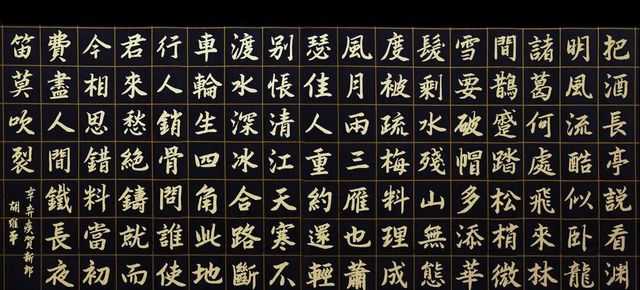 把酒長亭說看淵
明風流酷似臥龍
諸葛何處飛來林
間鵲蹙踏松梢微
雪要破帽多添華
髮剩水殘山無態
度被疏梅料理成
風月兩三雁也蕭
瑟佳人重約還輕
別悵清江天寒不
渡水深冰合路斷
車輪生四角此地
行人銷骨問誰使
君來愁絕鑄就而
今相思錯料當初
費盡人間鐵長夜
笛莫吹裂
辛弃疾賀新郎
胡維華